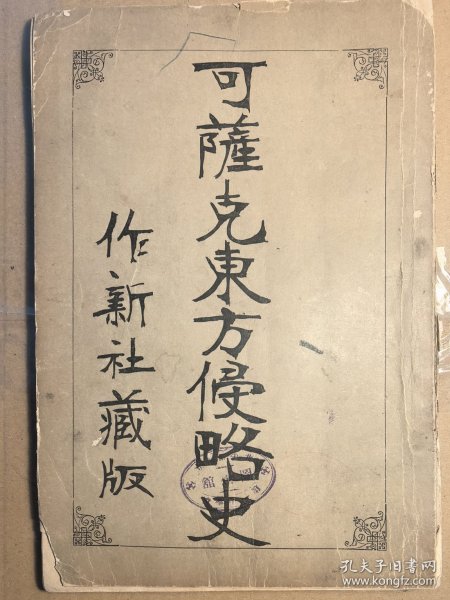 可薩克東方侵略史
作新社藏版
孔夫子旧书网
www.kongfz.com